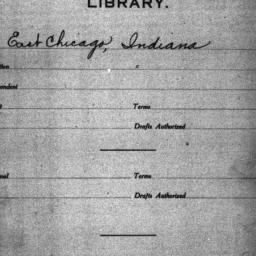 LIBRARY.
East Chicago, Indiana
Terms
Drafts Authorized
Terms
Drafts Authorized